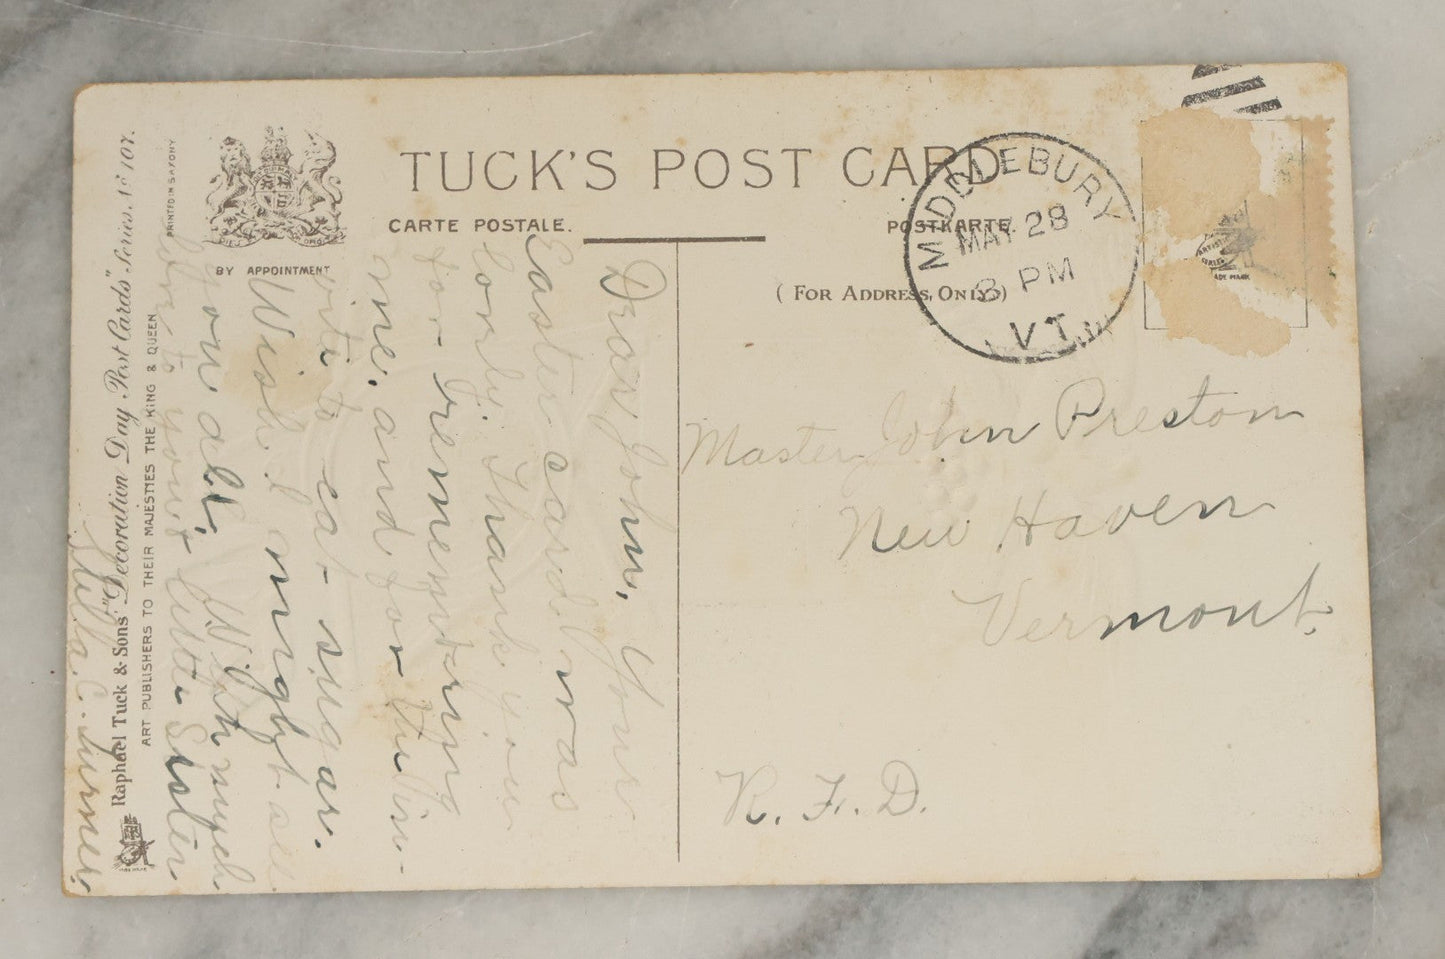 TUCK'S POST CARD
CARTE POSTALE.
POSTKARTE.
(FOR ADDRESS, ONLY.)
BY APPOINTMENT
PRINTED IN SAXONY
Raphael Tuck & Sons' "Decoration Day Post Cards" Series, No 107.
ART PUBLISHERS TO THEIR MAJESTIES THE KING & QUEEN
MIDDLEBURY
MAY 28
8 PM
VT.
Master John Preston
New Haven
Vermont.
R. F. D.
Dear John, Your
Easter card was
lovely. Thank you
for remembering
me, and for the in-
vite to eat sugar.
Wish I might see
you all. With much
love to your little Sister
Stella C. Turner.